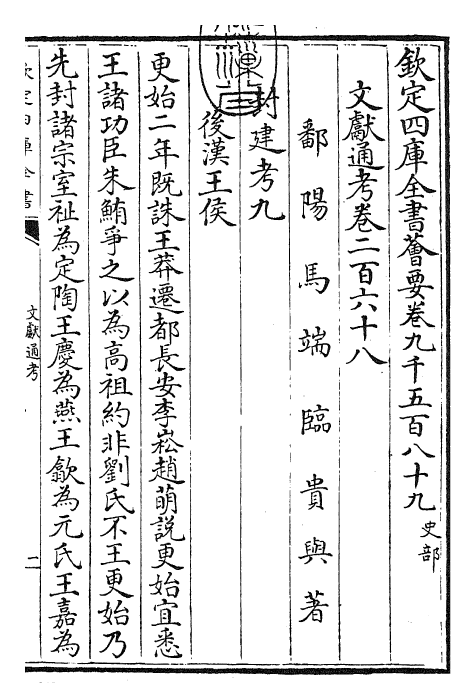 欽定四庫全書薈要卷九千五百八十九 史部
文獻通考卷二百六十八
鄱陽馬端臨貴與著
封建考九
後漢王侯
更始二年既誅王莽遷都長安李崧趙萌説更始宜悉
王諸功臣朱鮪爭之以為高祖約非劉氏不王更始乃
先封諸宗室祉為定陶王慶為燕王歙為元氏王嘉為
欽定四庫全書
文獻通考